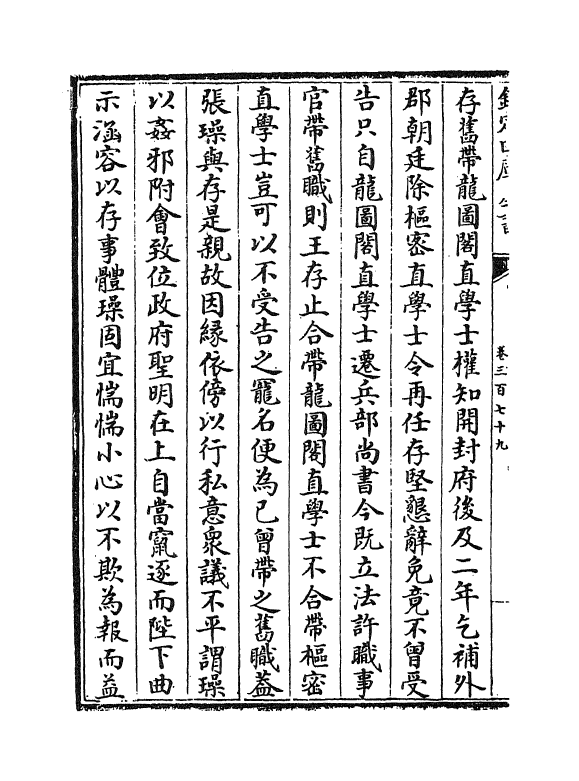 欽定四庫全書
卷三百七十九
存舊帶龍圖閣直學士權知開封府後及二年乞補外
郡朝廷除樞密直學士令再任存堅懇辭免竟不曾受
告只自龍圖閣直學士遷兵部尚書今既立法許職事
官帶舊職則王存止合帶龍圖閣直學士不合帶樞密
直學士豈可以不受告之寵名便為已曾帶之舊職蓋
張璪與存是親故因緣依傍以行私意衆議不平謂璪
以姦邪附會致位政府聖明在上自當竄逐而陛下曲
示涵容以存事體璪固宜惴惴小心以不欺為報而益